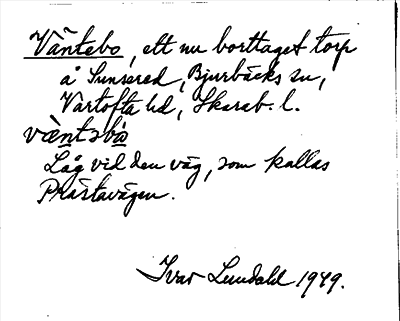 Väntebo, ett nu borttaget torp
å Sunsered, Bjurbäcks sn,
Vartofta hd, Skarab. l.
væ̀ntsbꙍ
Låg vid den väg, som kallas
Prästavägen.
Ivar Lundahl 1949.